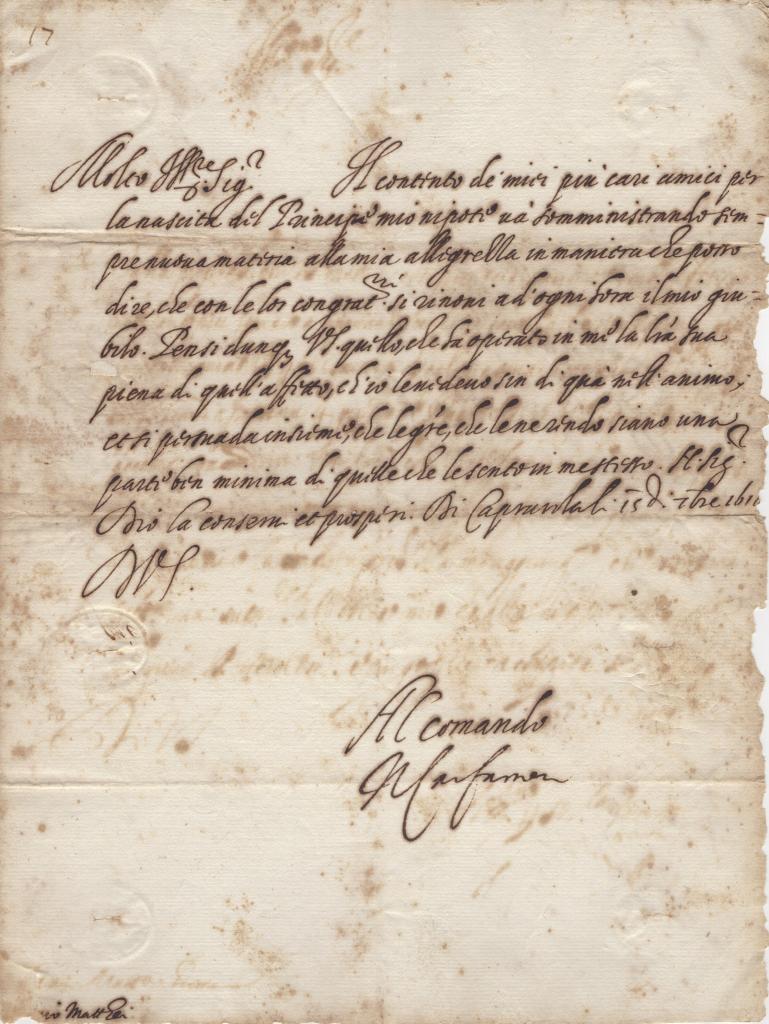 17
Molto Ill.re Sig.r Il contento de miei più cari amici per
la nascita del Principe mio nipote và somministrando sem-
pre nuova materia alla mia allegrezza in maniera che posso
dire, che con le lor congrat.ni si rinoui ad ogni hora il mio giu-
bilo. Pensi dunq; VS. quello, che hà operato in me la
piena di quell'affetto, ch'io le uedeuo sin di quà nell'animo,
et si persuada insieme, che le gr̃e, che le ne rendo siano una
parte ben minima di quelle che le sento in me stesso. Il Sig.r
Dio la conserui et prosperi. Di Caprarola li 15 di
DVS.
Al comando
Il Car Farnese
Matthei